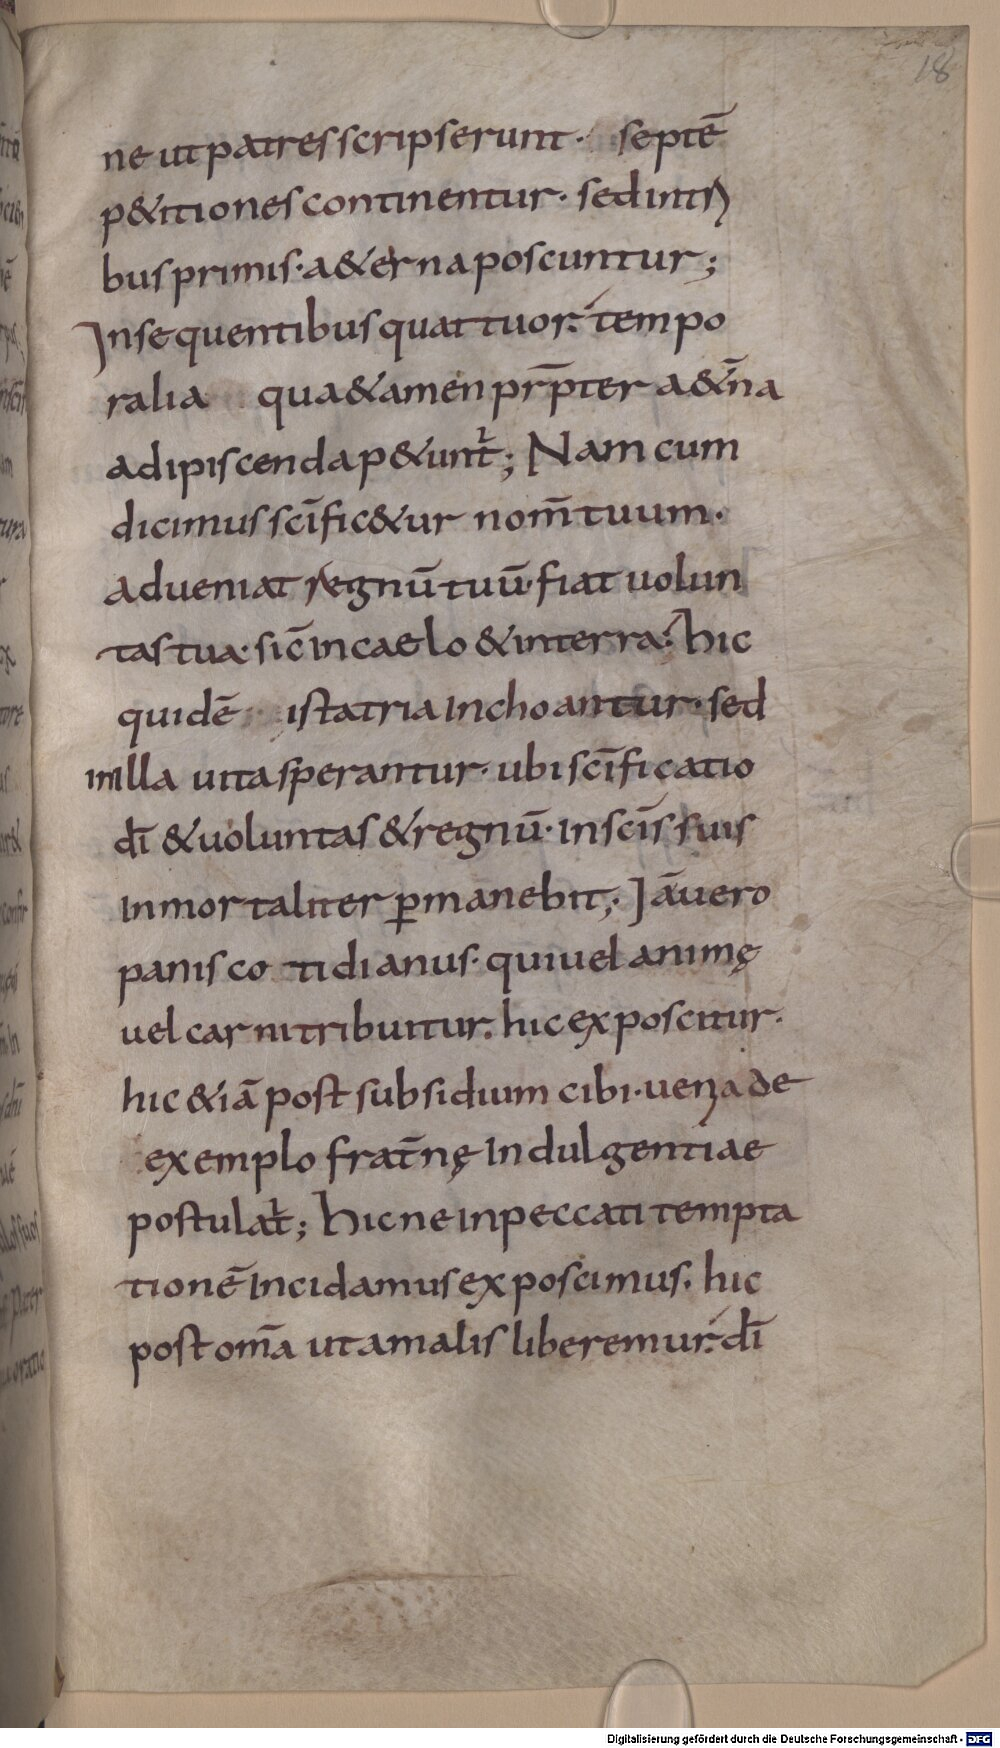 18
ne ut patres scripserunt· septē
p&itiones continentur· sed in trı
bus primis· a&erna poscuntur;
In sequentibus quattuor: tempo
ralia quae &amen prp̄ter a&̄na
adipiscenda p&unt̄; Nam cum
dicimus scīfic&ur nom̄ tuum·
adueniat regnū tuū· fiat uolun
tas tua· sic̄ in caelo & in terra: hic
quidē ista tria inchoantur· sed
in illa uita sperantur· ubi scīficatio
dī & uoluntas & regnū· in scīs suis
inmortaliter ꝑmanebit; Iā uero
panis cotidianus· qui uel animę
uel carni tribuitur· hic exposcitur·
hic &iā post subsidium cibi· uenia de
exemplo frat̄nę indulgentiae
postulat̄; hic ne in peccati tempta
tionē incidamus exposcimus· hic
post om̄a ut a malis liberemur· dī
Digitalisierung gefördert durch die Deutsche Forschungsgemeinschaft - DFG